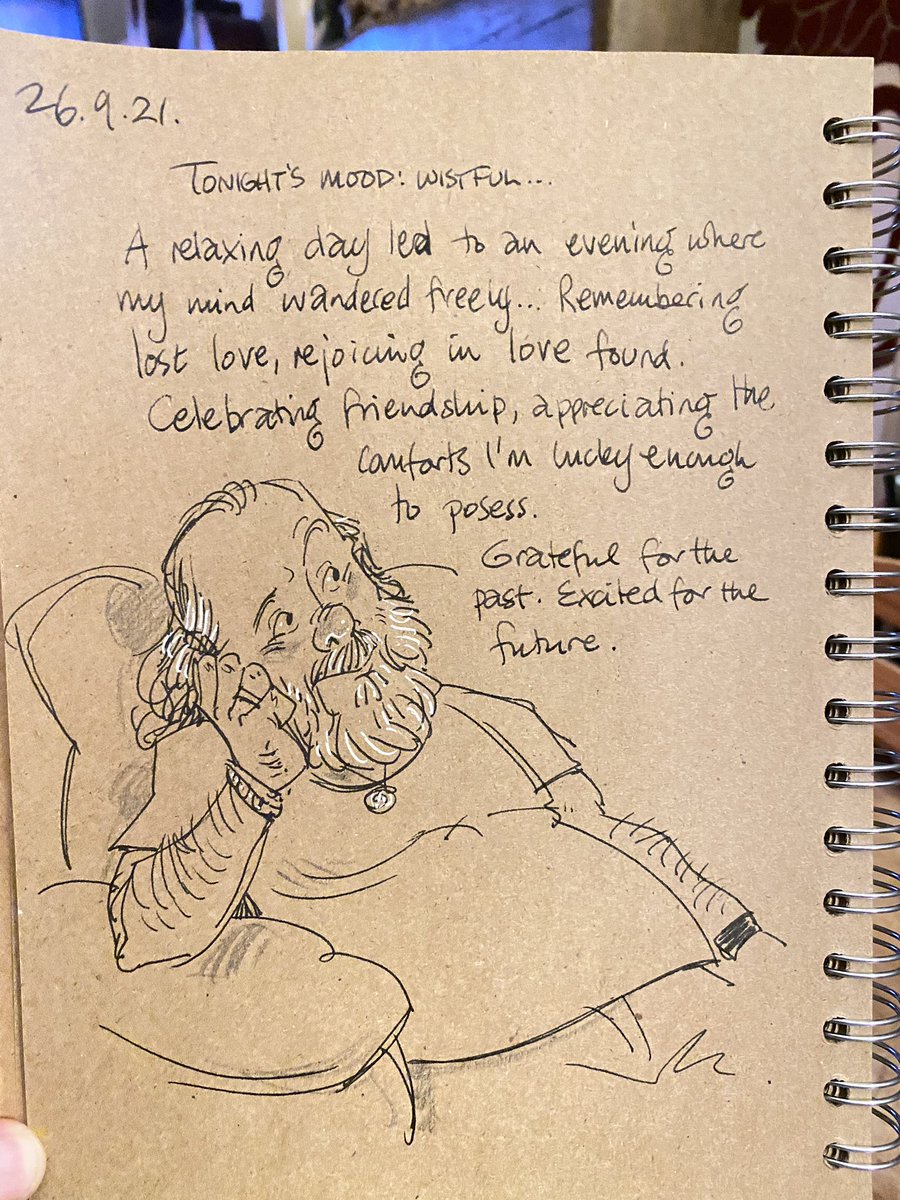 26.9.21.
TONIGHT'S MOOD: WISTFUL...
A relaxing day led to an evening where
my mind wandered freely... Remembering
lost love, rejoicing in love found.
Celebrating friendship, appreciating the
comforts I'm lucky enough
to posess.
Grateful for the
past. Excited for the
future.